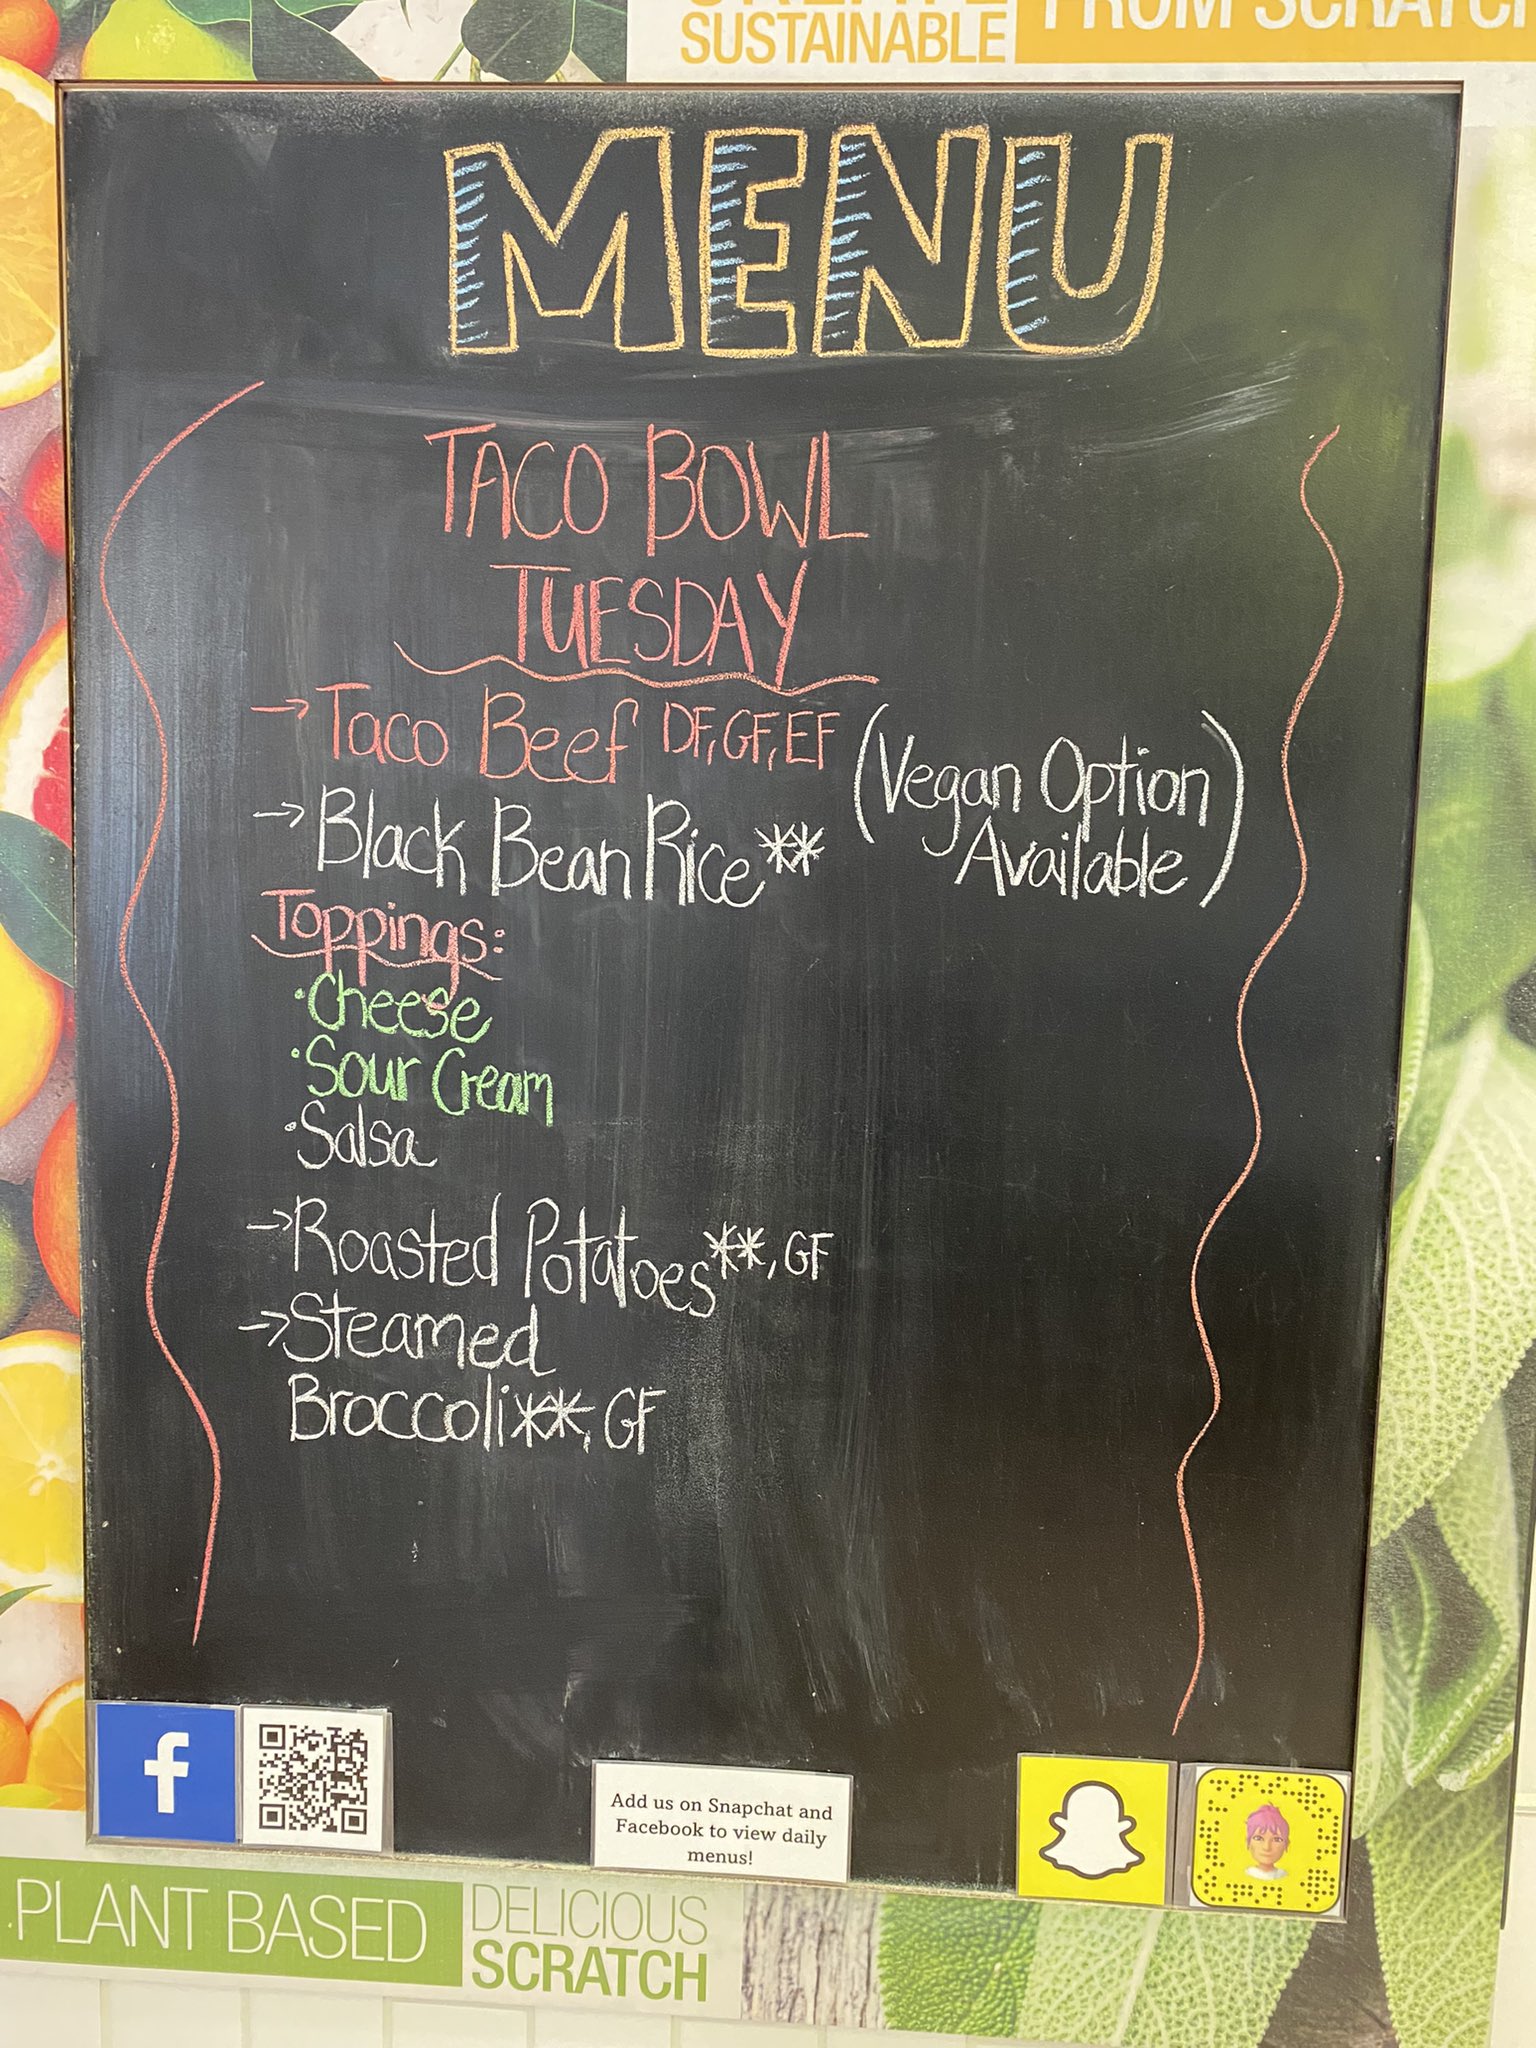 SUSTAINABLE
FROM SCRATCH
MENU
TACO BOWL
TUESDAY
→ Taco Beef DF, GF, EF
(Vegan Option
Available)
→ Black Bean Rice**
Toppings:
• Cheese
• Sour Cream
• Salsa
→ Roasted Potatoes**, GF
→ Steamed
Broccoli**, GF
f
Add us on Snapchat and
Facebook to view daily
menus!
PLANT BASED
DELICIOUS
SCRATCH